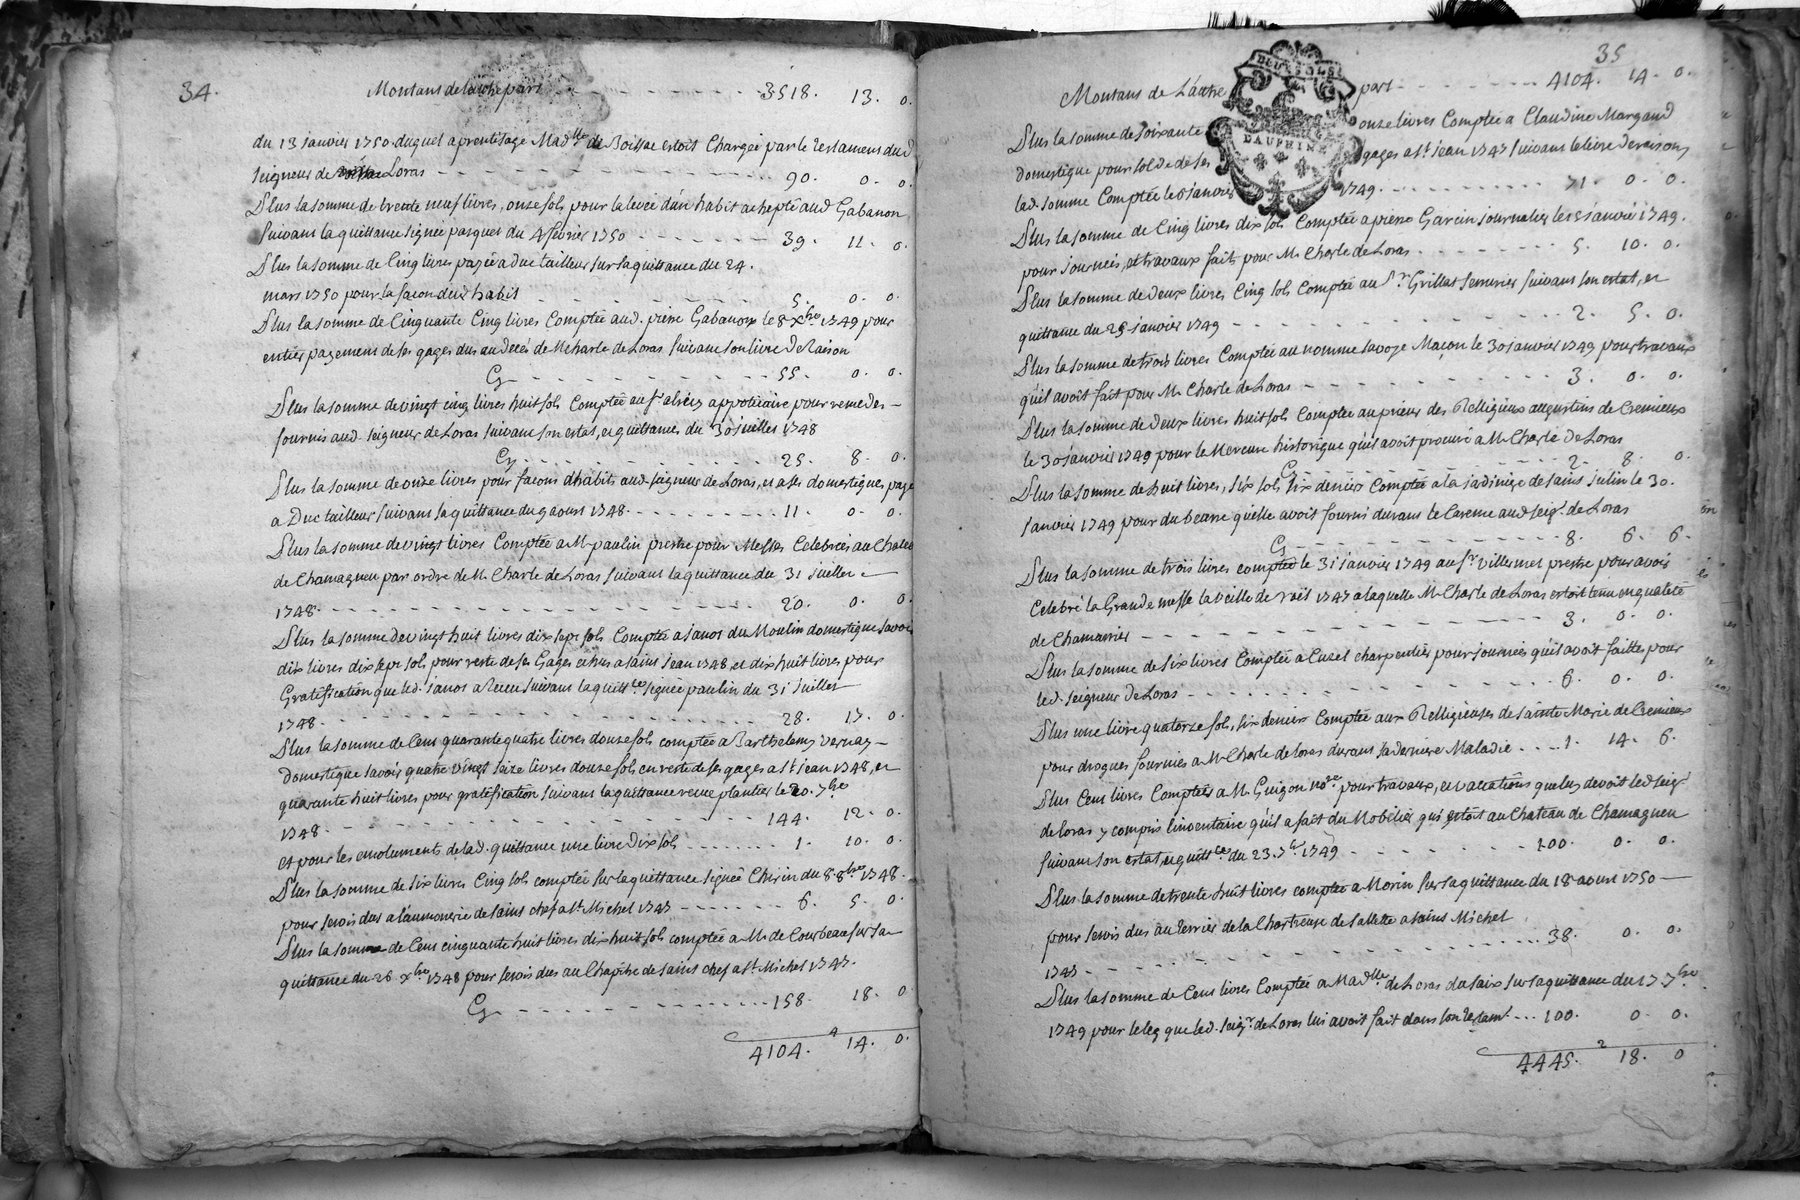 34.
Montans de lautre part - - - - - 3518. 13. 0.
du 13 janvier 1750 duquel aprentisage Madlle de Boissac estoit Chargée par le testament dud
seigneur de Loras - - - - - 90. 0. 0.
Plus la somme de trente neuf livres, onze sols pour la levée d'un habit achepté aud Gabanon
suivant la quittance signée parquet du 4 fevrier 1750 - - - - - 39. 11. 0.
Plus la somme de Cinq livres payée a Duc tailleur sur sa quittance du 24.
mars 1750 pour la façon dud habit - - - - - 5. 0. 0.
Plus la somme de Cinquante Cinq livres Comptée aud. pierre Gabanon le 8 xbre 1749 pour
entier payement de ses gages dus au decés de M Charle de Loras suivant son livre de Raison
Cy - - - - - 55. 0. 0.
Plus la somme de vingt cinq livres huit sols Comptée au sr appoticaire pour remedes
fournis aud. seigneur de Loras suivant son estat, et quittance du 30 juillet 1748
Cy - - - - - 25. 8. 0.
Plus la somme de onze livres pour façons d'habits aud. seigneur de Loras, et a ses domestiques payé
a Duc tailleur suivant sa quittance du 9 aoust 1748 - - - - - 11. 0. 0.
Plus la somme de vingt livres Comptée a Mr paulin prestre pour Messes Celebrées au Chateau
de Chamagneu par ordre de M. Charle de Loras suivant la quittance du 31 juillet
1748 - - - - - 20. 0. 0.
Plus la somme de vingt huit livres dix sept sols Comptée a janot du Moulin domestique savoir
dix livres dix sept sols pour reste de ses Gages echus a saint jean 1748, et dix huit livres pour
Gratification que led. janot a Receu suivant la quittce signée paulin du 31 juillet
1748 - - - - - 28. 17. 0.
Plus la somme de Cent quarante quatre livres douze sols comptée a Barthelemy vernay
domestique savoir quatre vingt seize livres douze sols en reste de ses gages a St jean 1748, et
quarante huit livres pour gratification suivant la quittance receue plantier le 20. 7bre
1748 - - - - - 144. 12. 0.
et pour les emoluments de lad. quittance une livre dix sols - - - - - 1. 10. 0.
Plus la somme de six livres Cinq sols comptée sur la quittance signée Chirin du 8 8bre 1748.
pour servis dus a l'aumonerie de saint chef a St Michel 1747 - - - - - 6. 5. 0.
Plus la somme de Cent cinquante huit livres dix huit sols comptée a M. de Courbeau sur sa
quittance du 26 xbre 1748 pour servis dus au Chapitre de saint chef a St Michel 1747.
Cy - - - - - 158. 18. 0.
4104. 14. 0.
35
Montans de L'autre part - - - - - 4104. 14. 0.
DEUX SOLS
DAUPHINE
Plus la somme de soixante onze livres Comptée a Claudine Margaud
domestique pour solde de ses gages a St jean 1747 suivant le livre de raison,
lad. somme Comptée le 8 janvier 1749 - - - - - 71. 0. 0.
Plus la somme de Cinq livres dix sols Comptée a pierre Garcin journalier le janvier 1749.
pour journées, et travaux faits pour M. Charle de Loras - - - - - 5. 10. 0.
Plus la somme de deux livres Cinq sols Comptée au Sr. Grillat serrurier suivant son estat, et
quittance du 25 janvier 1749 - - - - - 2. 5. 0.
Plus la somme de trois livres Comptée au nommé savoye Maçon le 30 janvier 1749 pour travaux
qu'il avoit fait pour M. Charle de Loras - - - - - 3. 0. 0.
Plus la somme de deux livres huit sols Comptée au prieur des Relligieux augustins de Cremieux
le 30 janvier 1749 pour le Mercure historique qu'il avoit procuré a M. Charle de Loras
Cy - - - - - 2. 8. 0.
Plus la somme de huit livres, six sols six deniers Comptée a la jardiniere de saint julin le 30.
janvier 1749 pour du beurre qu'elle avoit fourni durant le Careme aud. seigr. de Loras
Cy - - - - - 8. 6. 6.
Plus la somme de trois livres comptée le 31 janvier 1749 au sr villermet prestre pour avoir
Celebré la Grande messe la veille de rois 1747 a laquelle M. Charle de Loras estoit tenu en qualité
de Chamarier - - - - - 3. 0. 0.
Plus la somme de six livres Comptée a Cuzel charpentier pour journées qu'il avoit faittes pour
led. seigneur de Loras - - - - - 6. 0. 0.
Plus une livre quatorze sols, six deniers Comptée aux Relligieuses de sainte Marie de Cremieux
pour drogues fournies a M. Charle de Loras durant sa derniere Maladie - - - - 1. 14. 6.
Plus Cent livres Comptées a M. Guigou nore pour travaux, et vacations que luy devoit led seigr
de Loras y compris linventaire qu'il a fait du Mobilier qui estoit au Chateau de Chamagneu
suivant son estat, et quittce du 23. 7bre 1749 - - - - - 100. 0. 0.
Plus la somme de trente huit livres comptée a Morin sur sa quittance du 18 aoust 1750
pour servis dus au terrier de la Chartreuse de salette a saint Michel
1747 - - - - - 38. 0. 0.
Plus la somme de Cent livres Comptée a Madlle de Loras du saix sur sa quittance du 17 7bre
1749 pour le leg que led. seigr. de Loras lui avoit fait dans son testamt. - - - 100. 0. 0.
4445. 18. 0